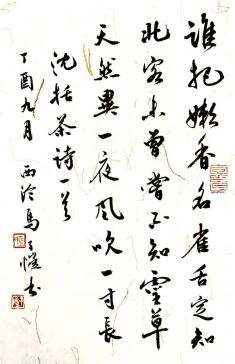 誰把嫩香名雀舌定知
北客未曾嘗不知靈草
天然異一夜風吹一寸長
沈括茶詩一首
丁酉九月 西泠馬